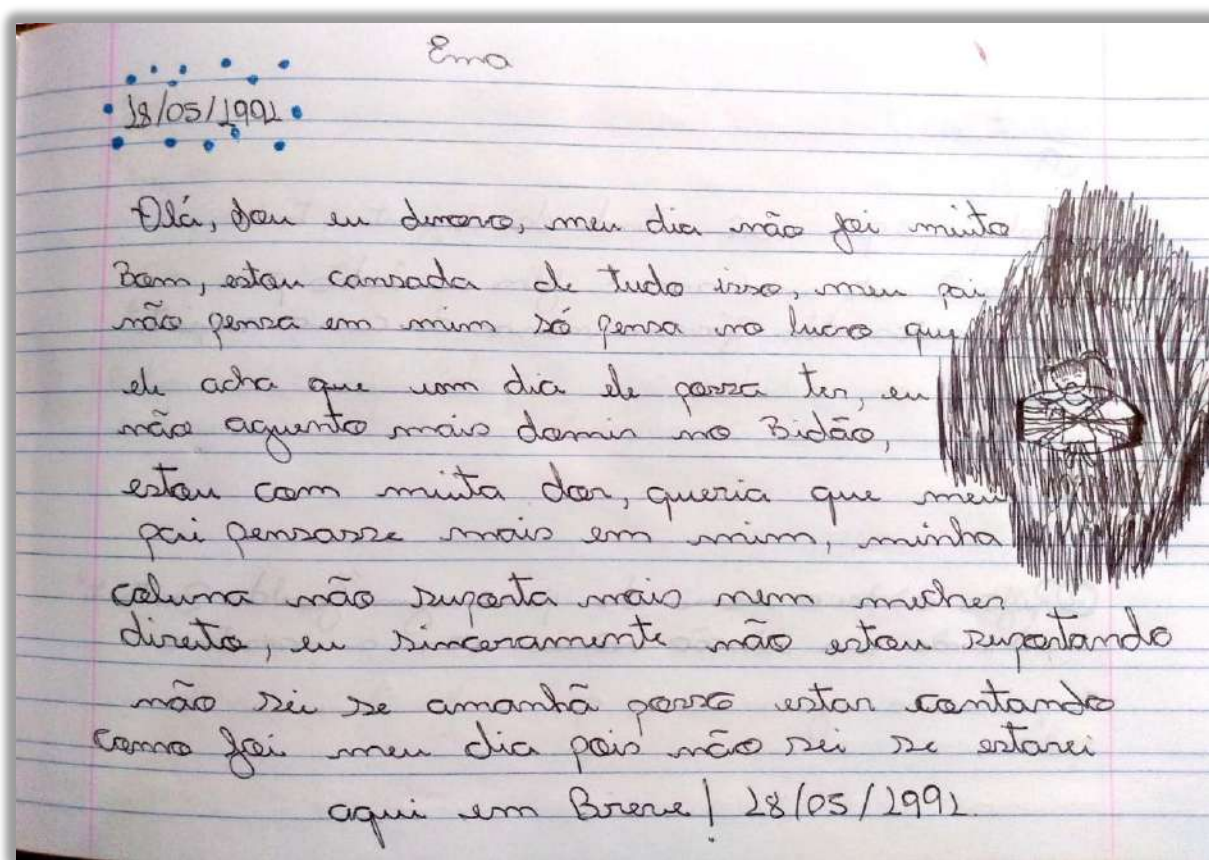 Ema
18/05/1991
Olá, sou eu denovo, meu dia não foi muito
Bom, estou cansada de tudo isso, meu pai
não pensa em mim só pensa no lucro que
ele acha que um dia ele possa ter, eu
não aguento mais domir no Bidão,
estou com muita dor, queria que meu
pai pensasse mais em mim, minha
coluna não suporta mais nem mecher
direito, eu sinceramente não estou suportando
não sei se amanhã posso estar contando
como foi meu dia pois não sei se estarei
aqui em Breve! 18/05/1991.